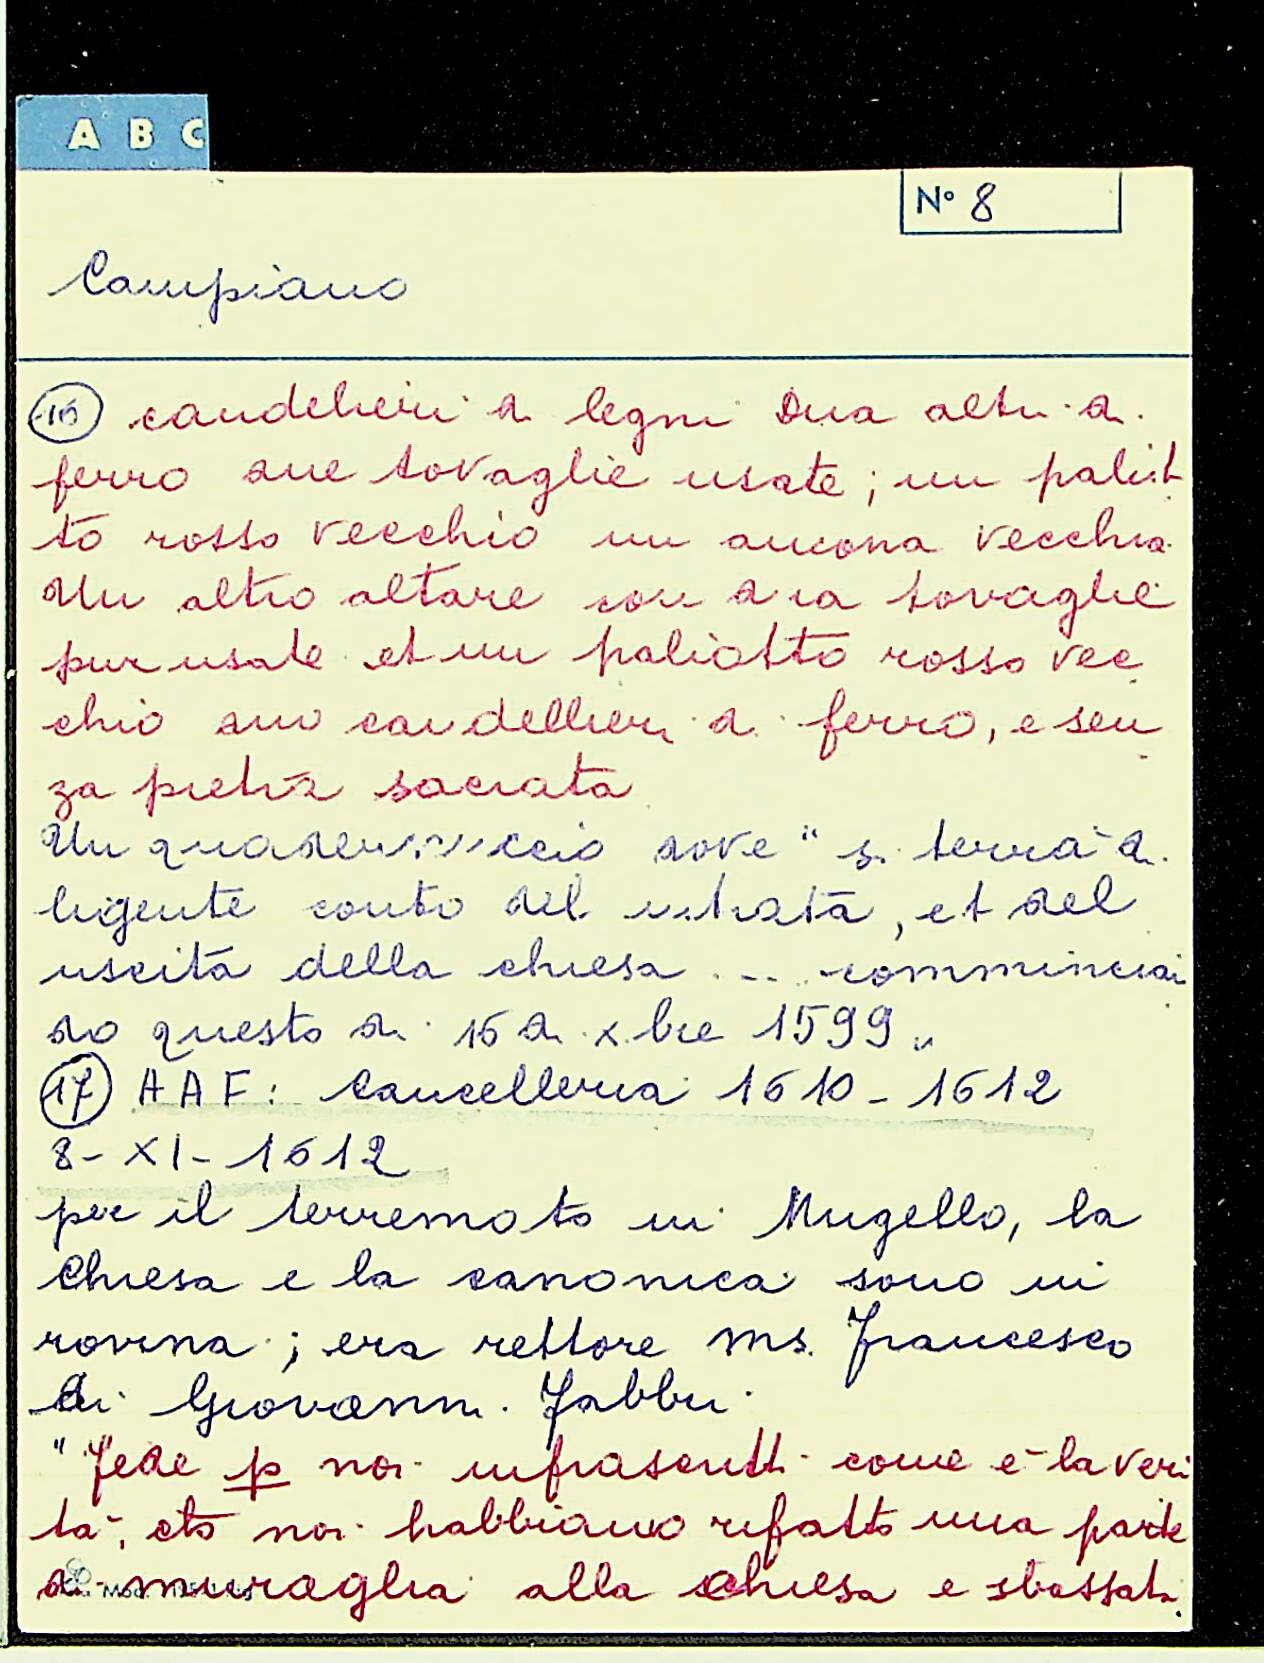 A B C
N° 8
Campiano
16 candelieri di legni dua altri di
ferro due tovaglie usate; un paliot
to rosso vecchio un ancona vecchia
Un altro altare con dua tovaglie
pur usate et un paliotto rosso vec
chio duo candellieri di ferro, e sen
za pietra sacrata
Un quadernuccio dove " si terrà di
ligente conto del entrata, et del
uscita della chiesa ... comminciai
do questo di 16 di xbre 1599"
17 AAF: Cancelleria 1610 - 1612
8 - XI - 1612
per il terremoto in Mugello, la
Chiesa e la canonica sono in
rovina; era rettore ms. Francesco
di Giovanni Fabbri.
"Fede p noi infrascritti come è la veri
tà, età noi habbiamo rifatto una parte
di muraglia alla chiesa e sbassata
Mod.